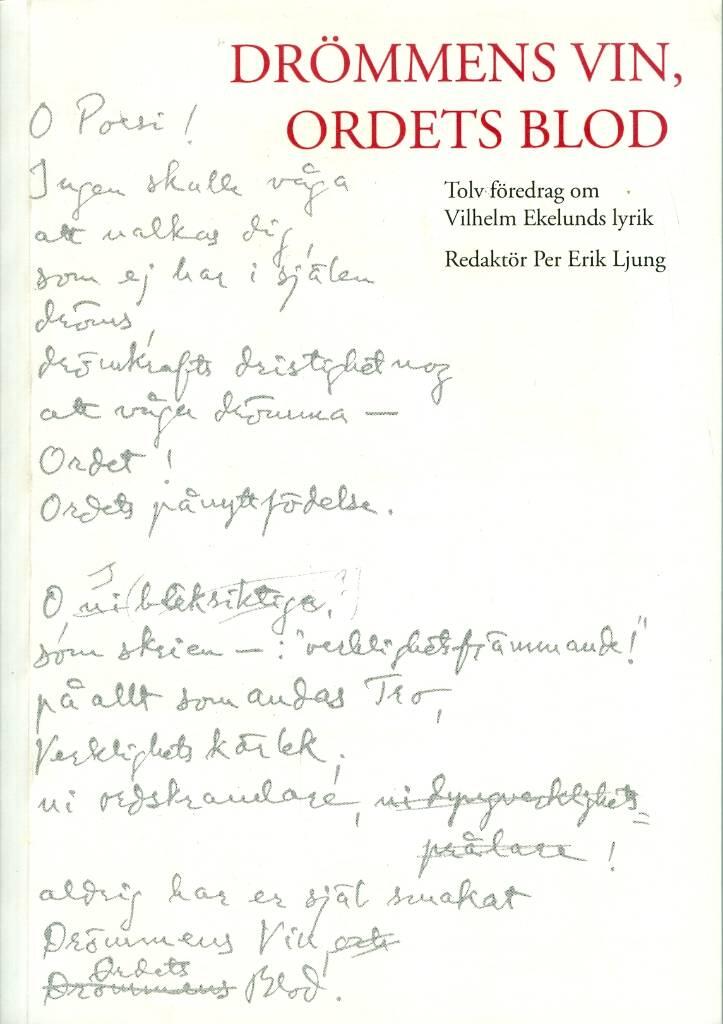 DRÖMMENS VIN,
ORDETS BLOD
Tolv föredrag om
Vilhelm Ekelunds lyrik
Redaktör Per Erik Ljung
O Poesi !
Ingen skulle våga
att nalkas dig,
som ej har i själen
dröms,
drömkrafts dristighet nog
att våga drömma —
Ordet !
Ordets pånyttfödelse.
O, ni (bleksiktiga,
som skrien — : "verklighetsfrämmande!"
på allt som andas Tro,
Verklighets kärlek,
ni ordskrandare, ni dyngverklighets=
prålare !
aldrig har er själ smakat
Drömmens Vin, och
Ordets
Drömmens Blod.